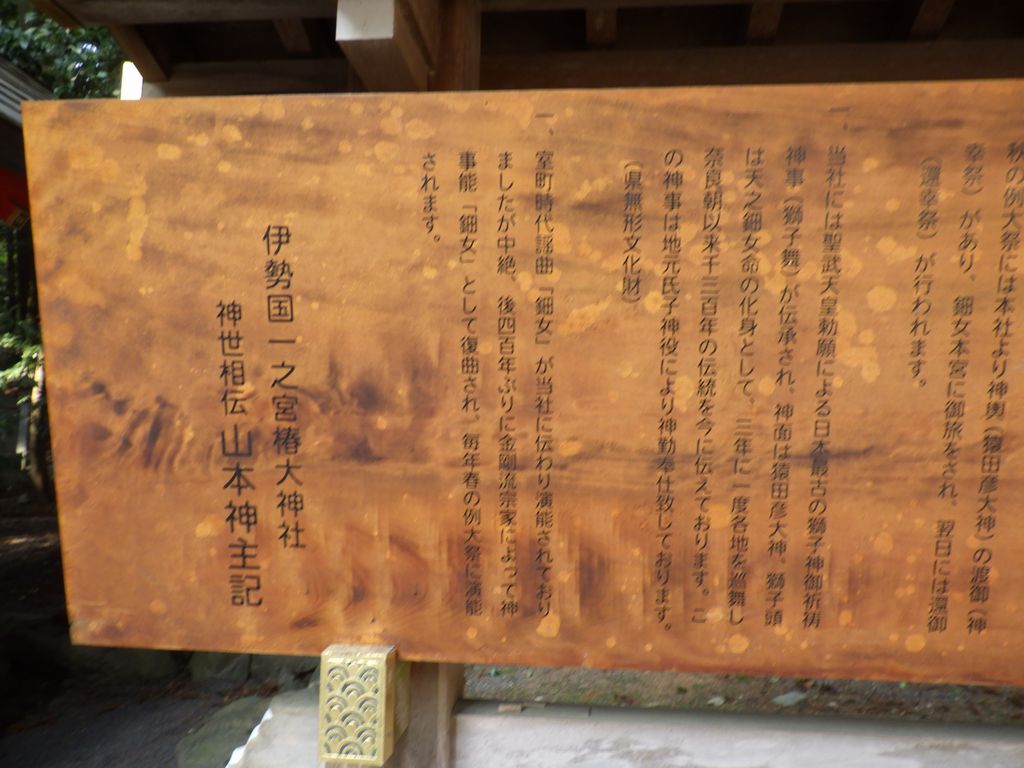 秋の例大祭には本社より神輿（猿田彦大神）の渡御（神
幸祭）があり、鈿女本宮に御旅をされ、翌日には還御
（還幸祭）が行われます。
一、当社には聖武天皇勅願による日本最古の獅子神御祈祷
神事（獅子舞）が伝承され、神面は猿田彦大神、獅子頭
は天之鈿女命の化身として、三年に一度各地を巡舞し
奈良朝以来千三百年の伝統を今に伝えております。こ
の神事は地元氏子神役により神勤奉仕致しております。
（県無形文化財）
一、室町時代謡曲「鈿女」が当社に伝わり演能されており
ましたが中絶、後四百年ぶりに金剛流宗家によって神
事能「鈿女」として復曲され、毎年春の例大祭に演能
されます。
伊勢国一之宮椿大神社
神世相伝山本神主記